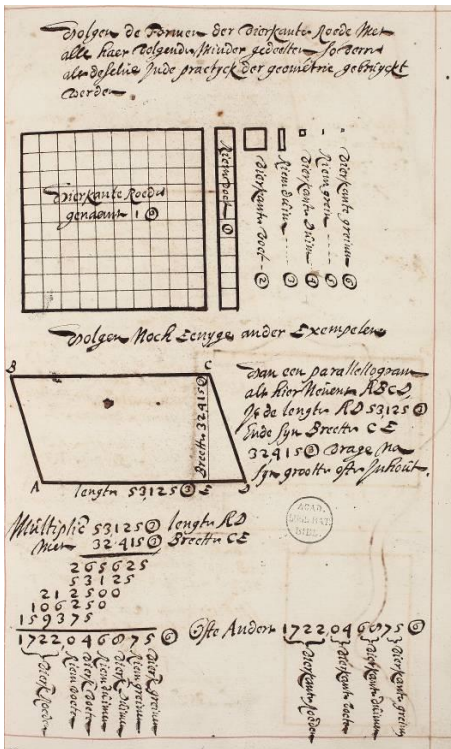 Volgen de Formen der Vierkante Roede Met
alle haer Volgende Minder gedeelten So Verre
als deselve Inde practyck der geometrie gebruyckt
Werden
Vierkante Roede
genaamt 1 ⓪
Riem Voet ①
Vierkante Voet ②
Riem duim ③
Vierkante Duim ④
Riem grein ⑤
Vierkante greinen ⑥
Volgen Noch Eenyge ander Exempelen
B C
Breette 32415
A lengte 53125 ③ E D
Van een parallellogram
als hier Nevens ABCD,
Is de lengte AD 53125 ③
Ende syn Breette CE
32415 ③ Vrage Na
syn grootte ofte Inhout.
Multiplic 53125 ③ lengte AD
Met 32415 ③ Breette CE
265625
53125
212500
106250
159375
1722046875 ⑥
Vierk Roeden
Riem Voeten
Vierk Voeten
Riem duimen
Vierk Duimen
Riem greinen
Vierk greinen
Ofte Anders 1722046875 ⑥
Vierkante Roeden
Vierkante Voeten
Vierkante Duimen
Vierkante greinen
ACAD.
LUGD. BAT.
BIBL.